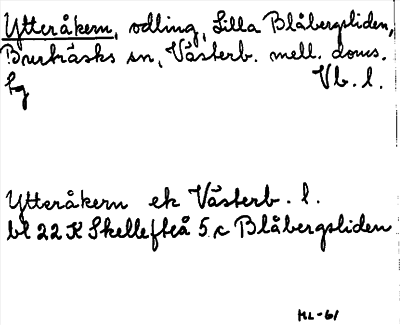 Ytteråkern, odling, Lilla Blåbergsliden,
Burträsks sn, Västerb. mell. doms.
hg Vb. l.
Ytteråkern ek Västerb. l.
bl 22 K Skellefteå 5 c Blåbergsliden
ML-61